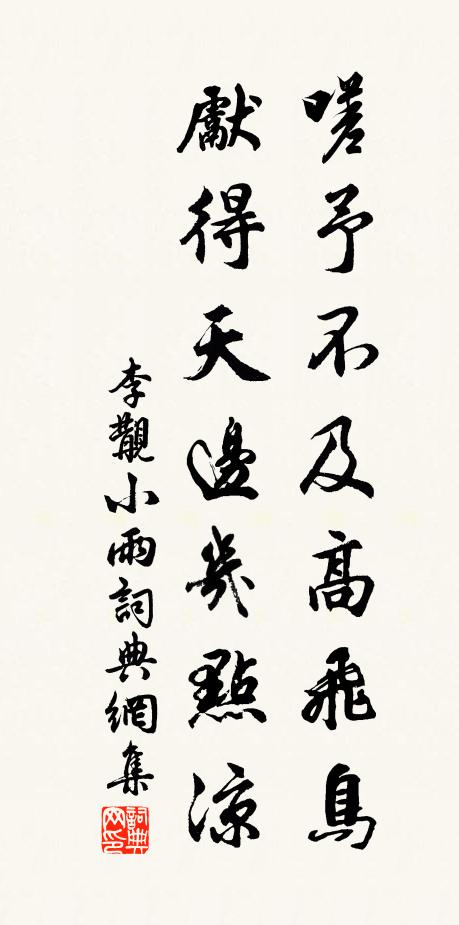 嗟予不及高飛鳥
獻得天邊幾點涼
李觀小雨詞典網集
詞典网印